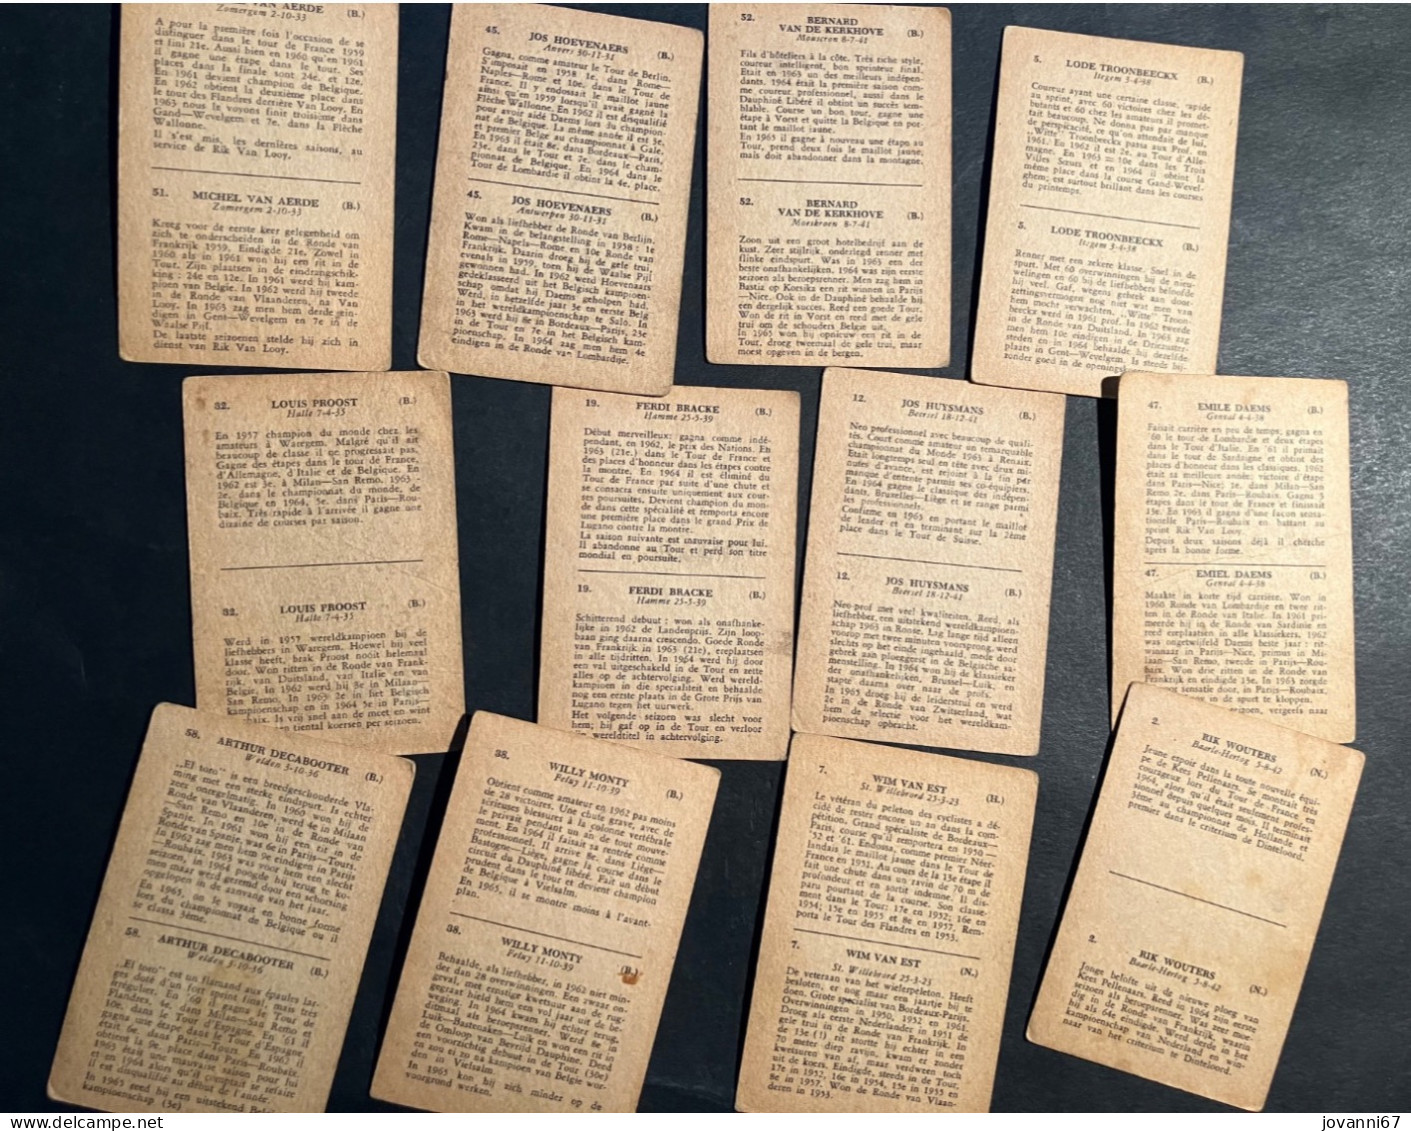 VAN AERDE (B.)
Zomergem 2-10-33
A pour la première fois l'occasion de se
distinguer dans le tour de France 1959
et fini 21e. Aussi bien en 1960 qu'en 1961
il gagne une étape dans le tour. Ses
places dans la finale sont 24e. et 12e.
En 1961 devient champion de Belgique.
En 1962 obtient la deuxième place dans
le tour des Flandres derrière Van Looy. En
1963 nous le voyons finir troisième dans
Gand—Wevelgem et 7e. dans la Flèche
Wallonne.
Il s'est mis, les dernières saisons, au
service de Rik Van Looy.
51. MICHEL VAN AERDE (B.)
Zomergem 2-10-33
Kreeg voor de eerste keer gelegenheid om
zich te onderscheiden in de Ronde van
Frankrijk 1959. Eindigde 21e. Zowel in
1960 als in 1961 won hij een rit in de
Tour. Zijn plaatsen in de eindrangschik-
king : 24e en 12e. In 1961 werd hij kam-
pioen van Belgie. In 1962 werd hij tweede
in de Ronde van Vlaanderen, na Van
Looy. In 1963 zag men hem derde ein-
digen in Gent—Wevelgem en 7e in de
Waalse Pijl.
De laatste seizoenen stelde hij zich in
dienst van Rik Van Looy.
45. JOS HOEVENAERS (B.)
Anvers 30-11-31
Gagna, comme amateur le Tour de Berlin.
S'imposait en 1958 1e. dans Rome—
Naples—Rome et 10e. dans le Tour de
France. Il y endossait le maillot jaune
ainsi qu'en 1959 lorsqu'il avait gagné la
Flèche Wallonne. En 1962 il est disqualifié
pour avoir aidé Daems lors du champion-
nat de Belgique. La même année il est 3e.
et premier Belge au championnat à Galo.
En 1963 il était 8e. dans Bordeaux—Paris,
23e. dans le Tour et 2e. dans le cham-
pionnat de Belgique. En 1964 dans le
Tour de Lombardie il obtint la 4e. place.
45. JOS HOEVENAERS (B.)
Antwerpen 30-11-31
Won als liefhebber de Ronde van Berlijn.
Kwam in de belangstelling in 1958 : 1e
Rome—Napels—Rome en 10e Ronde van
Frankrijk. Daarin droeg hij de gele trui,
evenals in 1959, toen hij de Waalse Pijl
gewonnen had. In 1962 werd Hoevenaars
gedeklasseerd uit het Belgisch kampioen-
schap omdat hij Daems geholpen had.
Werd, in hetzelfde jaar 3e en eerste Belg
in het wereldkampioenschap te Salo. In
1963 werd hij 8e in Bordeaux—Parijs, 23e
in de Tour en 7e in het Belgisch kam-
pioenschap. In 1964 zag men hem 4e
eindigen in de Ronde van Lombardije.
52. BERNARD
VAN DE KERKHOVE (B.)
Mouscron 8-7-41
Fils d'hôteliers à la côte. Très riche style,
coureur intelligent, bon sprinteur final.
Etait en 1963 un des meilleurs indépen-
dants. 1964 était la première saison com-
me coureur professionnel, aussi dans le
Dauphiné Libéré il obtint un succès sem-
blable. Course un bon tour, gagne une
étape à Vorst et quitte la Belgique en por-
tant le maillot jaune.
En 1965 il gagne à nouveau une étape au
Tour, prend deux fois le maillot jaune,
mais doit abandonner dans la montagne.
52. BERNARD
VAN DE KERKHOVE (B.)
Moeskroen 8-7-41
Zoon uit een groot hotelbedrijf aan de
kust. Zeer stijlrijk, onderlegd renner met
flinke eindspurt. Was in 1963 een der
beste onafhankelijken. 1964 was zijn eerste
seizoen als beroepsrenner. Men zag hem in
Bastia op Korsika een rit winnen in Parijs
—Nice. Ook in de Dauphiné behaalde hij
een dergelijk succes. Reed een goede Tour.
Won de rit in Vorst en reed met de gele
trui om de schouders Belgie uit.
In 1965 won hij opnieuw een rit in de
Tour, droeg tweemaal de gele trui, maar
moest opgeven in de bergen.
5. LODE TROONBEECKX (B.)
Itegem 3-4-38
Coureur ayant une certaine classe, rapide
au sprint, avec 60 victoires chez les dé-
butants et 60 chez les amateurs il promet-
tait beaucoup. Ne donna pas par manque
de perspicacité, ce qu'on attendait de lui,
„Witte" Troonbeeckx passa aux Prof. en
1961. En 1962 il est 2e. au Tour d'Alle-
magne. En 1963 = 10e dans les Trois
Villes Sœurs et en 1964 il obtint la
même place dans la course Gand-Wevel-
ghem; est surtout brillant dans les courses
du printemps.
5. LODE TROONBEECKX (B.)
Itegem 3-4-38
Renner met een zekere klasse. Snel in de
spurt. Met 60 overwinningen bij de nieu-
welingen en 60 bij de liefhebbers beloofde
hij veel. Gaf, wegens gebrek aan door-
zettingsvermogen nog niet wat men van
hem mocht verwachten. „Witte" Troon-
beeckx werd in 1961 prof. In 1962 tweede
in de Ronde van Duitsland. In 1963 zag
men hem 10e eindigen in de Driezuster-
steden en in 1964 behaalde hij dezelfde
plaats in Gent—Wevelgem. Is steeds bij-
zonder goed in de openingskoersen.
32. LOUIS PROOST (B.)
Halle 7-4-35
En 1957 champion du monde chez les
amateurs à Waregem. Malgré qu'il ait
beaucoup de classe il ne progressait pas.
Gagne des étapes dans le tour de France,
d'Allemagne, d'Italie et de Belgique. En
1962 est 3e. à Milan—San Remo, 1963 -
2e. dans le championnat du monde, de
Belgique en 1964, 5e. dans Paris—Rou-
baix. Très rapide à l'arrivée il gagne une
dizaine de courses par saison.
32. LOUIS PROOST (B.)
Halle 7-4-35
Werd in 1957 wereldkampioen bij de
liefhebbers in Waregem. Hoewel hij veel
klasse heeft, brak Proost nooit helemaal
door. Won ritten in de Ronde van Frank-
rijk, van Duitsland, van Italie en van
Belgie. In 1962 werd hij 3e in Milaan—
San Remo. In 1963 2e in het Belgisch
kampioenschap en in 1964 5e in Parijs—
Roubaix. Is vrij snel aan de meet en wint
een tiental koersen per seizoen.
19. FERDI BRACKE (B.)
Hamme 25-5-39
Début merveilleux: gagna comme indé-
pendant, en 1962, le prix des Nations. En
1963 (21e.) dans le Tour de France et
des places d'honneur dans les étapes contre
la montre. En 1964 il est éliminé du
Tour de France par suite d'une chute et
se consacra ensuite uniquement aux cour-
ses poursuites. Devient champion du mon-
de dans cette spécialité et remporta encore
une première place dans le grand Prix de
Lugano contre la montre.
La saison suivante est mauvaise pour lui.
Il abandonne au Tour et perd son titre
mondial en poursuite.
19. FERDI BRACKE (B.)
Hamme 25-5-39
Schitterend debuut : won als onafhanke-
lijke in 1962 de Landenprijs. Zijn loop-
baan ging daarna crescendo. Goede Ronde
van Frankrijk in 1963 (21e), ereplaatsen
in alle tijdritten. In 1964 werd hij door
een val uitgeschakeld in de Tour en zette
alles op de achtervolging. Werd wereld-
kampioen in die specialiteit en behaalde
nog een eerste plaats in de Grote Prijs van
Lugano tegen het uurwerk.
Het volgende seizoen was slecht voor
hem; hij gaf op in de Tour en verloor
zijn wereldtitel in achtervolging.
12. JOS HUYSMANS (B.)
Beersel 18-12-41
Neo professionnel avec beaucoup de quali-
tés. Court comme amateur un remarquable
championnat du Monde 1963 à Renaix.
Etait longtemps seul en tête avec deux mi-
nutes d'avance, est rejoint à la fin par
manque d'entente parmis ses co-équipiers.
En 1964 gagne le classique des indépen-
dants, Bruxelles—Liège et se range parmi
les professionnels.
Confirme en 1965 en portant le maillot
de leader et en terminant sur la 2ème
place dans le Tour de Suisse.
12. JOS HUYSMANS (B.)
Beersel 18-12-41
Neo-prof met veel kwaliteiten. Reed, als
liefhebber, een uitstekend wereldkampioen-
schap 1963 in Ronse. Lag lange tijd alleen
voorop met twee minuten voorsprong, werd
echter op het einde ingehaald, mede door
gebrek aan ploeggeest in de Belgische sa-
menstelling. In 1964 won hij de klassieker
der onafhankelijken, Brussel—Luik, en
stapte daarna over naar de profs.
In 1965 droeg hij de leiderstrui en werd
2e in de Ronde van Zwitserland, wat
hem de selectie voor het wereldkam-
pioenschap opbracht.
47. EMILE DAEMS (B.)
Genval 4-4-38
Faisait carrière en peu de temps; gagna en
'60 le tour de Lombardie et deux étapes
dans le Tour d'Italie. En '61 il primait
dans le tour de Sardaigne et obtint des
places d'honneur dans les classiques. 1962
était sa meilleure année: victoire d'étape
dans Paris—Nice; 1e. dans Milan—San
Remo 2e. dans Paris—Roubaix. Gagna 3
étapes dans le tour de France et finissait
15e. En 1963 il gagna d'une façon sensa-
tionelle Paris—Roubaix en battant au
sprint Rik Van Looy.
Depuis deux saisons déjà il cherche
après la bonne forme.
47. EMIEL DAEMS (B.)
Genval 4-4-38
Maakte in korte tijd carrière. Won in
1960 Ronde van Lombardije en twee rit-
ten in de Ronde van Italie. In 1961 pri-
meerde hij in de Ronde van Sardinie en
reed ereplaatsen in alle klassiekers. 1962
was ongetwijfeld Daems beste jaar : rit-
winnaar in Parijs—Nice, primus in Mi-
laan—San Remo, tweede in Parijs—Rou-
baix. Won drie ritten in de Ronde van
Frankrijk en eindigde 15e. In 1963 zorgde
sensatie door, in Parijs—Roubaix,
in de spurt te kloppen.
seizoen, vergeefs naar
58. ARTHUR DECABOOTER (B.)
Welden 3-10-36
„El toro" is een breedgeschouderde Vla-
ming met een sterke eindspurt. Is echter
zeer onregelmatig. In 1960 won hij de
Ronde van Vlaanderen, werd 4e in Milaan
—San Remo en 10e in de Ronde van
Spanje. In 1961 won hij een rit in de
Ronde van Spanje, was 6e in Parijs—Tours.
In 1962 zag men hem 9e eindigen in Parijs
—Roubaix. 1963 was voor hem een slecht
seizoen, in 1964 poogde hij terug te ko-
men maar werd geremd door een schorsing
opgelopen in de aanvang van het jaar.
En 1965, on le voyait en bonne forme
lors du championnat de Belgique ou il
se classa 3ème.
58. ARTHUR DECABOOTER (B.)
Welden 3-10-36
"El toro" est un flamand aux épaules lar-
ges doté d'un fort sprint final, mais très
irrégulier. En '60 il gagna le Tour de
Flandres, 4e. dans Milan—San Remo et
10e. dans le Tour d'Espagne. En '61 il
gagna une étape dans le Tour d'Espagne,
était 6e. dans Paris—Tours. En 1962 il
obtient la 9e. place dans Paris—Roubaix.
1963 était une mauvaise saison pour lui
et en 1964 alors qu'il comptait se refaire
il est disqualifié au début de l'année.
In 1965 reed hij een uitstekend Belgisch
kampioenschap (3e)
38. WILLY MONTY (B.)
Feluy 11-10-39
Obtient comme amateur en 1962 pas moins
de 28 victoires. Une chute grave, avec de
sérieuses blessures à la colonne vertébrale
le privait pendant un an de tout mouve-
ment. En 1964 il faisait sa rentrée comme
professionnel. Il arrive 8e. dans Liège—
Bastogne—Liège, gagne la course dans le
circuit du Dauphiné libéré. Fait un début
prudent dans le tour et devient champion
de Belgique à Vielsalm.
En 1965, il se montre moins à l'avant-
plan.
38. WILLY MONTY (B.)
Feluy 11-10-39
Behaalde, als liefhebber, in 1962 niet min-
der dan 28 overwinningen. Een zware on-
geval, met ernstige kwetsuur aan de rug-
gegraat hield hem een vol jaar uit de be-
weging. In 1964 kwam hij echter terug,
ditmaal als beroepsrenner. Werd 8e in
Luik—Bastenaken—Luik en won een rit in
de Omloop van Bevrijd Dauphine. Deed
een voorzichtig debuut in de Tour (30e)
en zou er zo na kampioen van Belgie wor-
den in Vielsalm.
In 1965 kon hij zich minder op de
voorgrond werken.
7. WIM VAN EST (H.)
St. Willebrord 25-3-23
Le vétéran du peleton des cyclistes a dé-
cidé de rester encore un an dans la com-
pétition. Grand spécialiste de Bordeaux—
Paris, course qu'il remportera en 1950 —
'52 et '61. Endossa, comme premier Néer-
landais le maillot jaune dans le Tour de
France en 1951. Au cours de la 13e étape il
fait une chute dans un ravin de 70 m de
profondeur et en sortit indemne. Il dis-
paru pourtant de la course. Son classe-
ment dans le Tour: 17e en 1952; 16e en
1954; 15e en 1955 et 8e en 1957. Rem-
porta le Tour des Flandres en 1953.
7. WIM VAN EST (N.)
St. Willebrord 25-3-23
De veteraan van het wielerspeleton. Heeft
besloten, er nog maar een jaartje bij te
doen. Grote specialist van Bordeaux-Parijs.
Overwinningen in 1950, 1952 en 1961.
Droeg als eerste Nederlander in 1951 de
gele trui in de Ronde van Frankrijk. In
de 13e (!) rit stortte hij echter in een
70 meter diep ravijn, kwam er zonder
kwetsuren van af, maar verdween toch
uit de koers. Eindigde, steeds in de Tour,
17e in 1952, 16e in 1954, 15e in 1955 en
8e in 1957. Won de Ronde van Vlaan-
deren in 1953.
2. RIK WOUTERS (N.)
Baarle-Hertog 5-8-42
Jeune espoir dans la toute nouvelle équi-
pe de Kees Pellenaars. Se montrait très
courageux lors du Tour de France en
1964, alors qu'il était seulement profes-
sionnel depuis quelques mois. Il terminait
3ème au championnat de Hollande et
premier dans le criterium de Dinteloord.
2. RIK WOUTERS (N.)
Baarle-Hertog 5-8-42
Jonge belofte uit de nieuwe ploeg van
Kees Pellenaars. Reed in 1964 zijn eerste
seizoen als beroepsrenner. Was zeer moe-
dig in de Ronde van Frankrijk, waarin
hij als 64e eindigde. Werd derde in het
kampioenschap van Nederland en win-
naar van het criterium te Dinteloord.
jovanni67